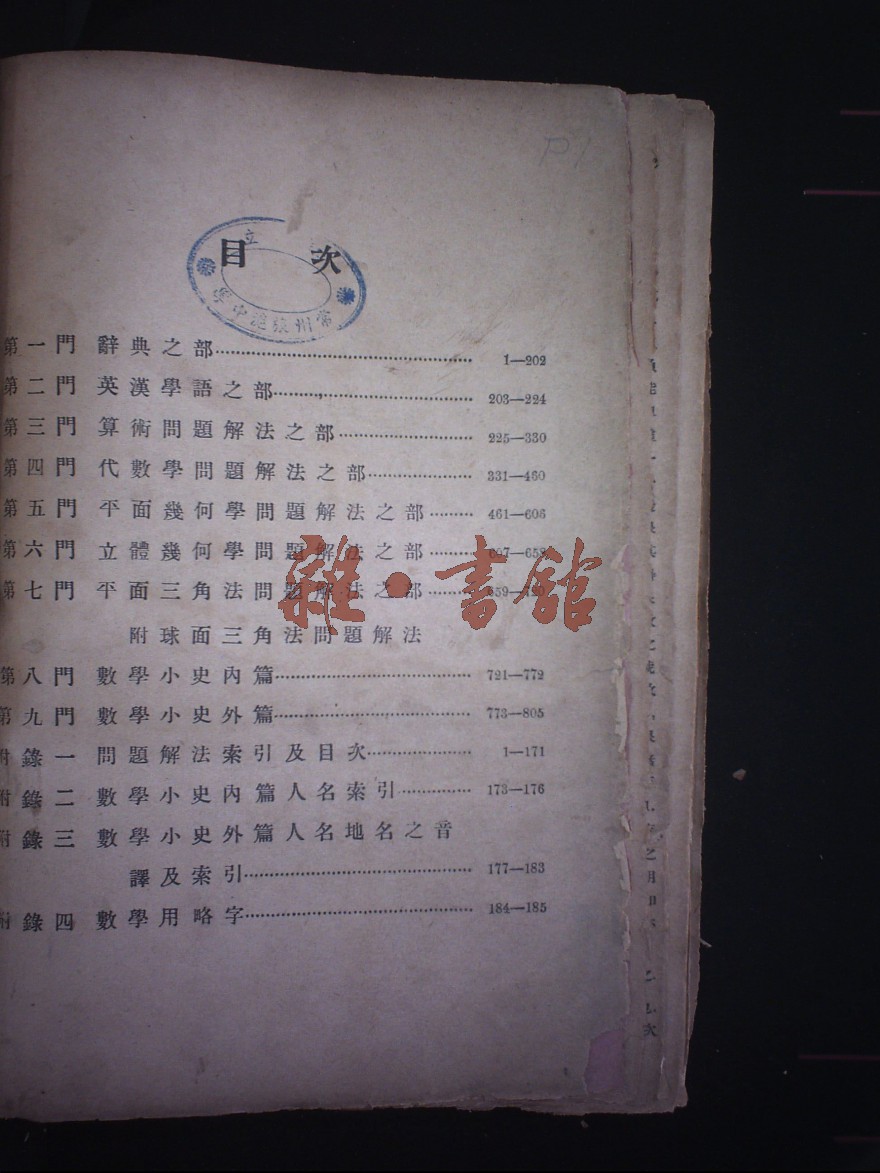 P1
目 次
第一門 辭典之部 1—202
第二門 英漢學語之部 203—224
第三門 算術問題解法之部 225—330
第四門 代數學問題解法之部 331—460
第五門 平面幾何學問題解法之部 461—606
第六門 立體幾何學問題解法之部 607—658
第七門 平面三角法問題解法之部
附球面三角法問題解法
第八門 數學小史內篇 721—772
第九門 數學小史外篇 773—805
附錄一 問題解法索引及目次 1—171
附錄二 數學小史內篇人名索引 173—176
附錄三 數學小史外篇人名地名之音
譯及索引 177—183
附錄四 數學用略字 184—185
雜·書館